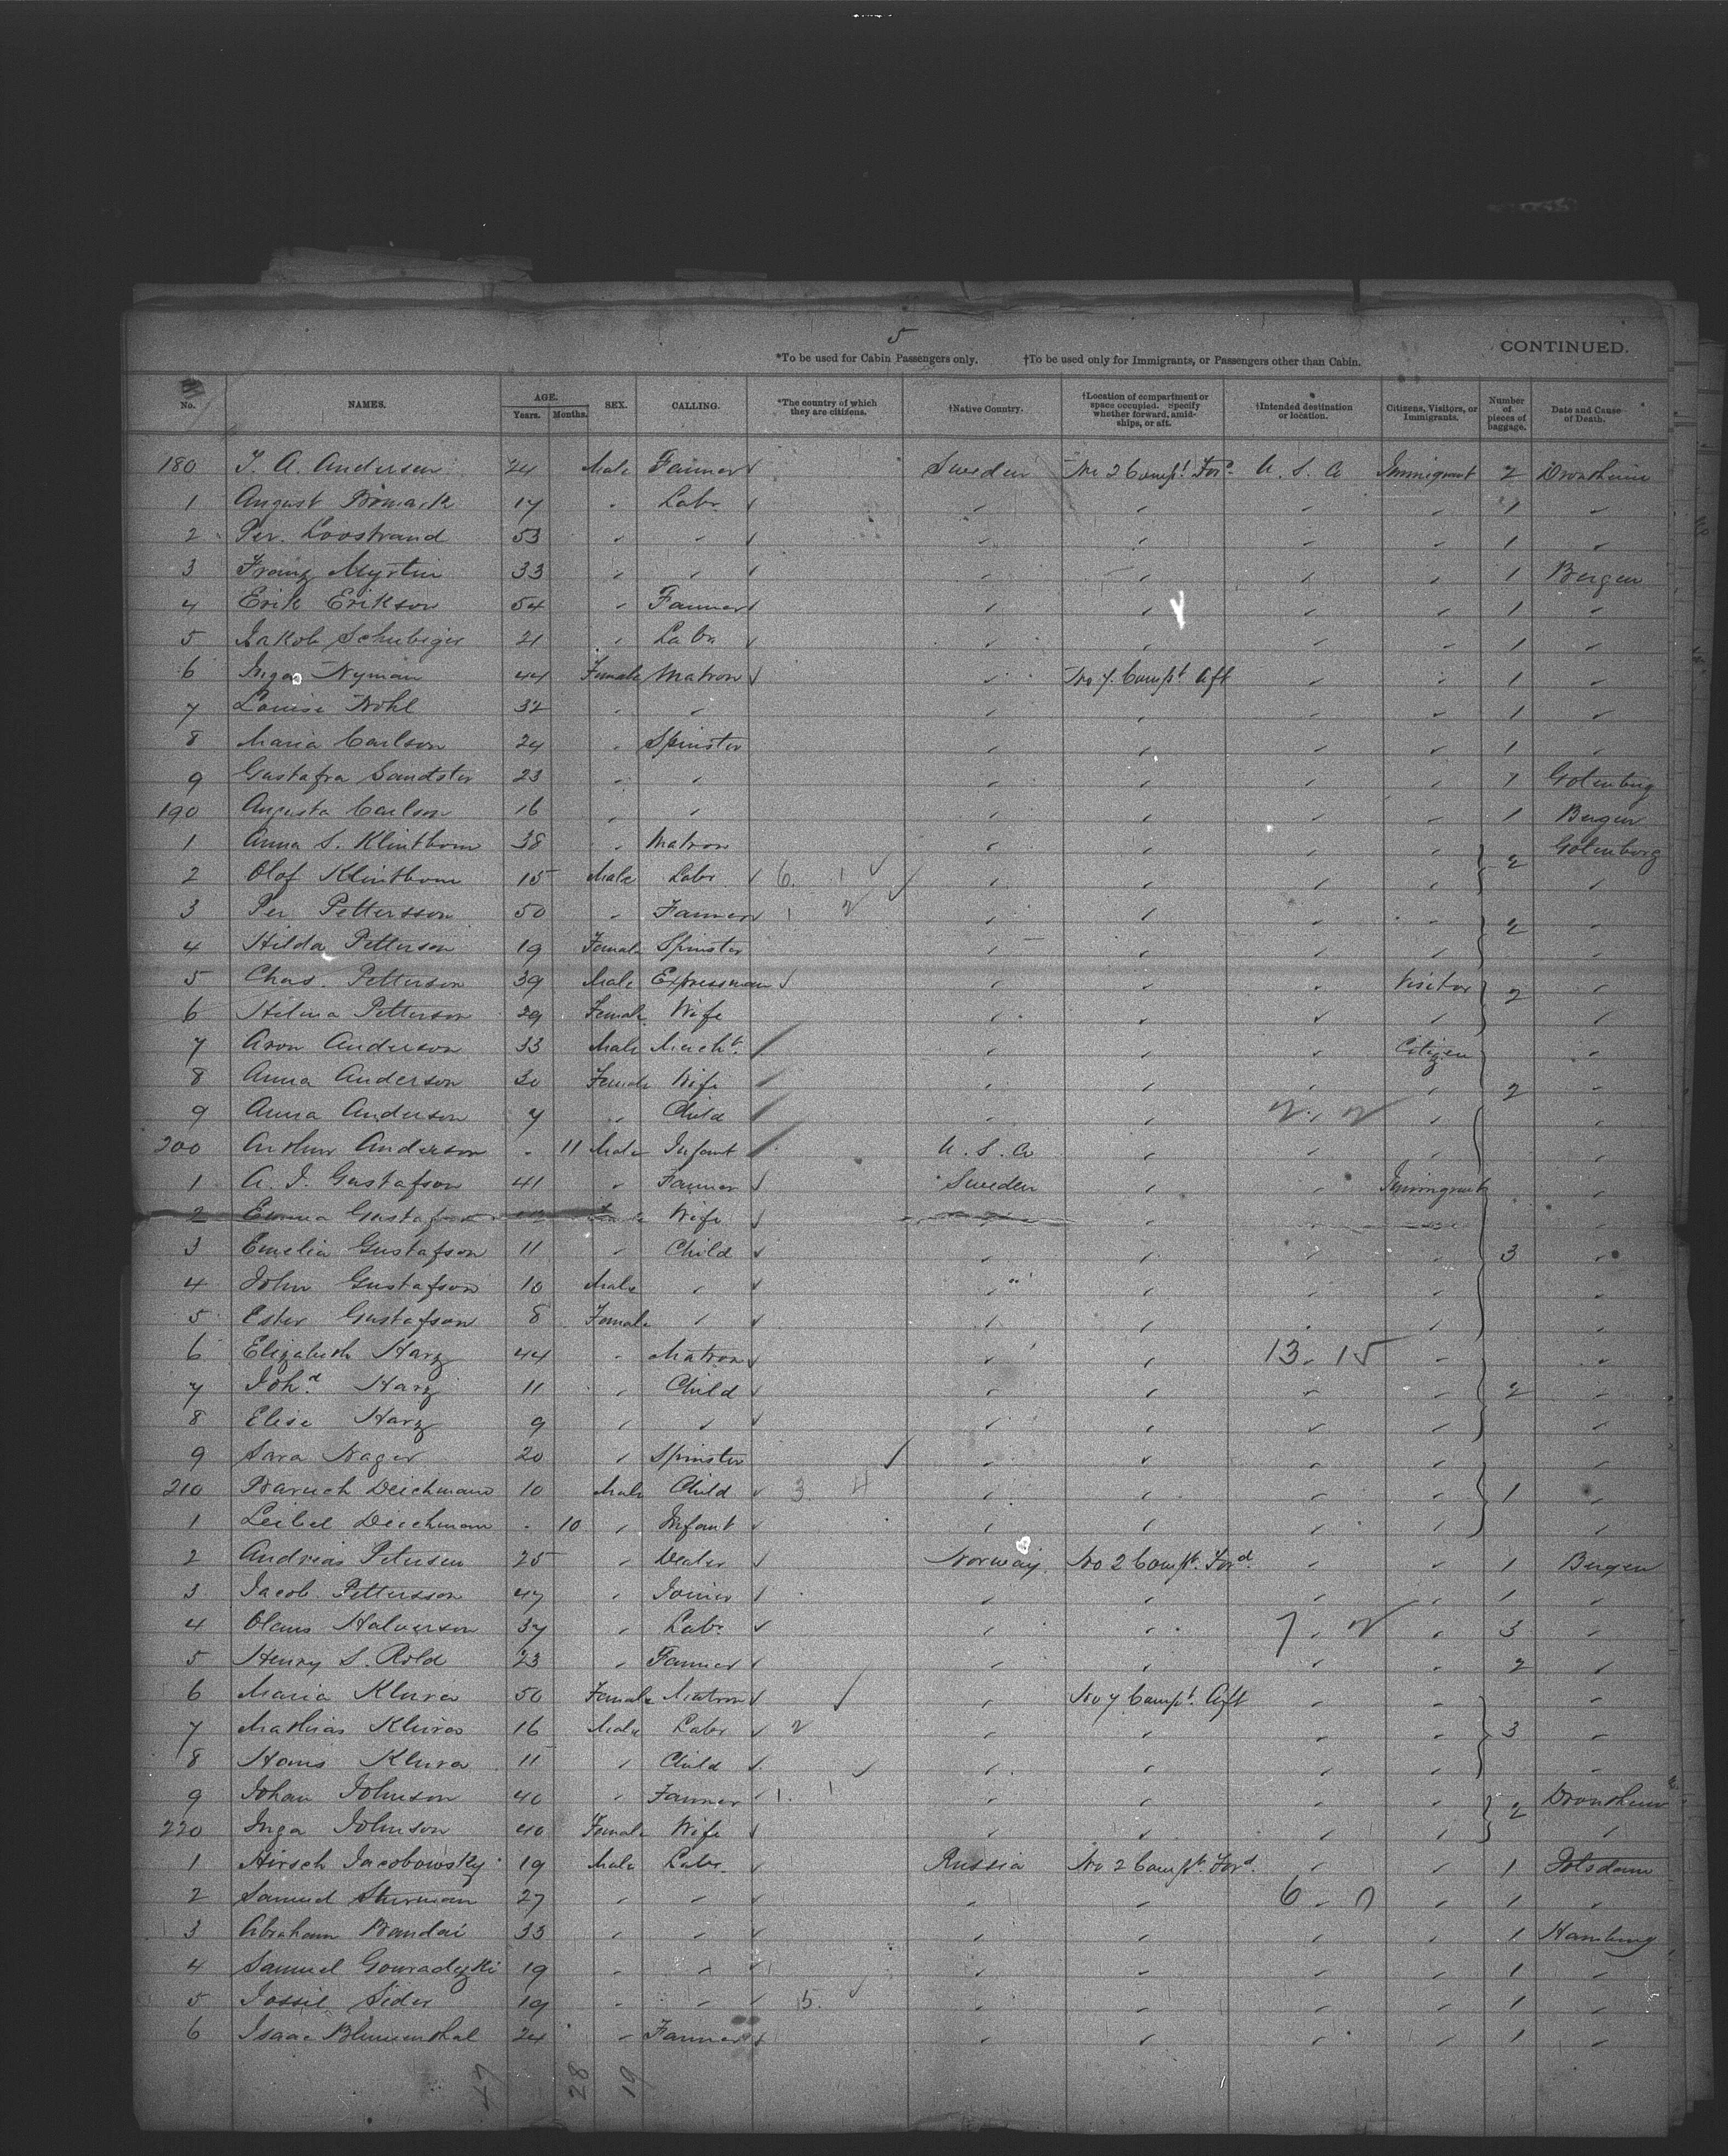 5
*To be used for Cabin Passengers only. †To be used only for Immigrants, or Passengers other than Cabin. CONTINUED.
No. NAMES. AGE. Years. Months. SEX. CALLING. *The country of which they are citizens. †Native Country. †Location of compartment or space occupied. Specify whether forward, amidships, or aft. †Intended destination or location. Citizens, Visitors, or Immigrants. Number of pieces of baggage. Date and Cause of Death.
180 A. Anderson 24 Male Farmer Sweden No 2 Compt. For. U. S. A Immigrant 2 Drontheim
1 August 17 " Labr " " " " 1 "
2 Per. Loostrand 53 " " " " " " 1 "
3 Franz Myrtin 33 " " " " " " 1 Bergen
4 Erik Erikson 54 " Farmer " " " " 1 "
5 Jakob Schubiger 21 " Labr " " " " 1 "
6 Inga Nyman 44 Female Matron " No 7. Compt. Aft " " 1 "
7 Louise 32 " " " " " " 1 "
8 Maria Carlson 24 " Spinster " " " " 1 "
9 Gustafva 23 " " " " " " 1 Gotenburg
190 Augusta Carlson 16 " " " " " " 1 Bergen
1 Anna S. Klintbom 38 " Matron " " " " 2 Gotenborg
2 Olof Klintbom 15 Male Labr 6. 1 " " " " "
3 Per Pettersson 50 " Farmer 1 2 " " " " 2 "
4 Hilda Petterson 19 Female Spinster " " " " "
5 Chas. Petterson 39 Male Expressman " " " Visitor 2 "
6 Hilma Petterson 29 Female Wife " " " " "
7 Aron Anderson 33 Male Macht. " " " Citizen "
8 Anna Anderson 30 Female Wife " " " " 2 "
9 Anna Anderson 7 " Child " " 2. 2 " "
200 Arthur Anderson . 11 Male Infant U. S. A " " " "
1 A. J. Gustafson 41 " Farmer Sweden " " Immigrant "
2 Emma Gustafson Wife "
3 Emelia Gustafson 11 " Child " " " " 3 "
4 John Gustafson 10 Male " " " " " "
5 Ester Gustafson 8 Female " " " " " "
6 Elizabeth Harz 44 " Matron " " 13. 15 " "
7 Johd Harz 11 " Child " " " " 2 "
8 Elise Harz 9 " " " " " " "
9 Sara Nager 20 " Spinster " " " " "
210 Baruch Deichmann 10 Male Child 3. 4 " " " " 1 "
1 Leibel Deichman . 10 " Infant " " " " "
2 Andreas Petersen 25 " Dealer Norway. No 2 Compt. Ford. " " 1 Bergen
3 Jacob. Pettersson 47 " Joiner " " " " 1 "
4 Olaus Halverson 37 " Labr. " " 7. 2 " 3 "
5 Henry S. Rold 23 " Farmer " " " " 2 "
6 Maria Klura 50 Female Matron " No 7 Compt. Aft " " "
7 Mathias Klura 16 Male Labr 2 " " " " 3 "
8 Hans Klura 11 " Child " " " " "
9 Johan Johnson 40 " Farmer 1. 1 " " " " 2 Drontheim
220 Inga Johnson 40 Female Wife " " " " "
1 Hirsch Jacobowsky 19 Male Labr. Russia No 2 Compt. Ford. " " 1 Potsdam
2 Samuel Sturman 27 " " " " 6 " 1 "
3 Abraham Bandai 33 " " " " " " 1 Hamburg
4 Samuel 19 " " " " " " 1 "
5 Jossil Sider 19 " " 15. " " " " 1 "
6 Isaac Blumenthal 24 " Farmer " " " " 1 "
47 28 19